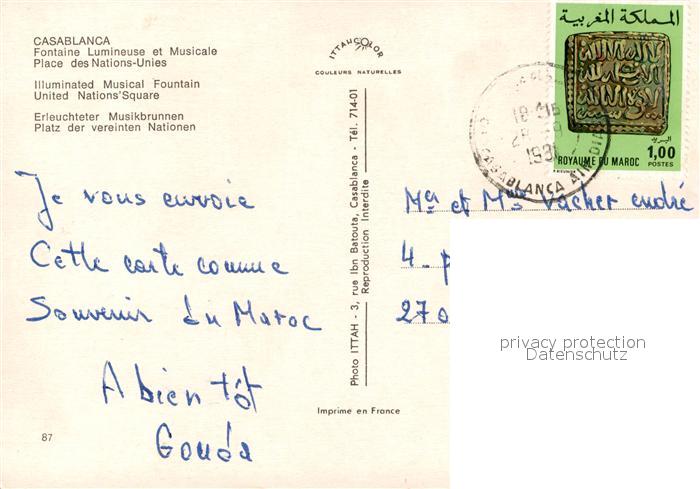 CASABLANCA
Fontaine Lumineuse et Musicale
Place des Nations-Unies
Illuminated Musical Fountain
United Nations'Square
Erleuchteter Musikbrunnen
Platz der vereinten Nationen
ITTAHCOLOR
COULEURS NATURELLES
المملكة المغربية
البريد
1,00
ROYAUME DU MAROC
POSTES
1981
CASABLANCA
Je vous envoie
Cette carte comme
Souvenir du Maroc
A bien tôt
Gouda
Photo ITTAH - 3, rue Ibn Batouta, Casablanca - Tél. 714-01
Reproduction Interdite
Mr et Mme Vacher andré
4 - p
270
privacy protection
Datenschutz
Imprime en France
87